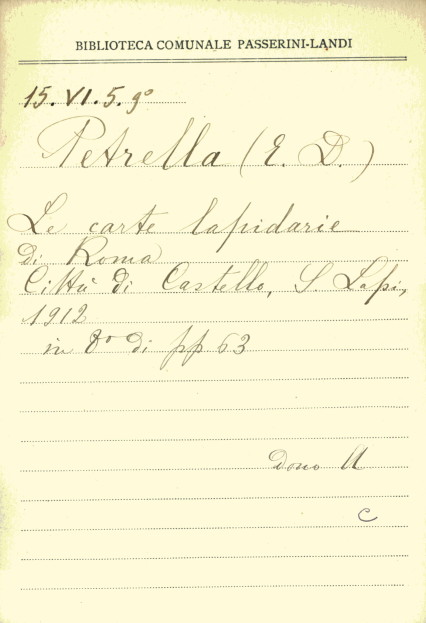 BIBLIOTECA COMUNALE PASSERINI-LANDI
15. VI. 5. 9º
Petrella (E. D.)
Le carte lapidarie
di Roma
Città di Castello, S. Lapi,
1912
in 8º di pp 63
dono A
C